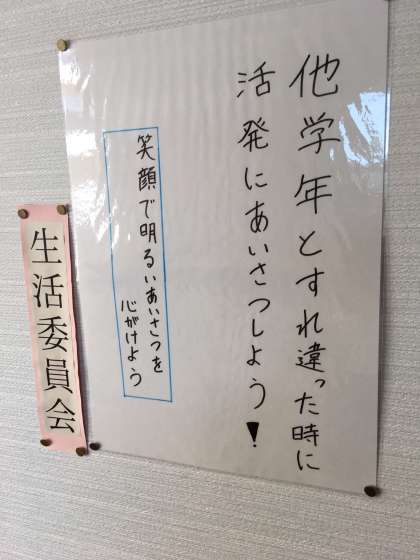 他学年とすれ違った時に
活発にあいさつしよう!
笑顔で明るいあいさつを
心がけよう
生活委員会